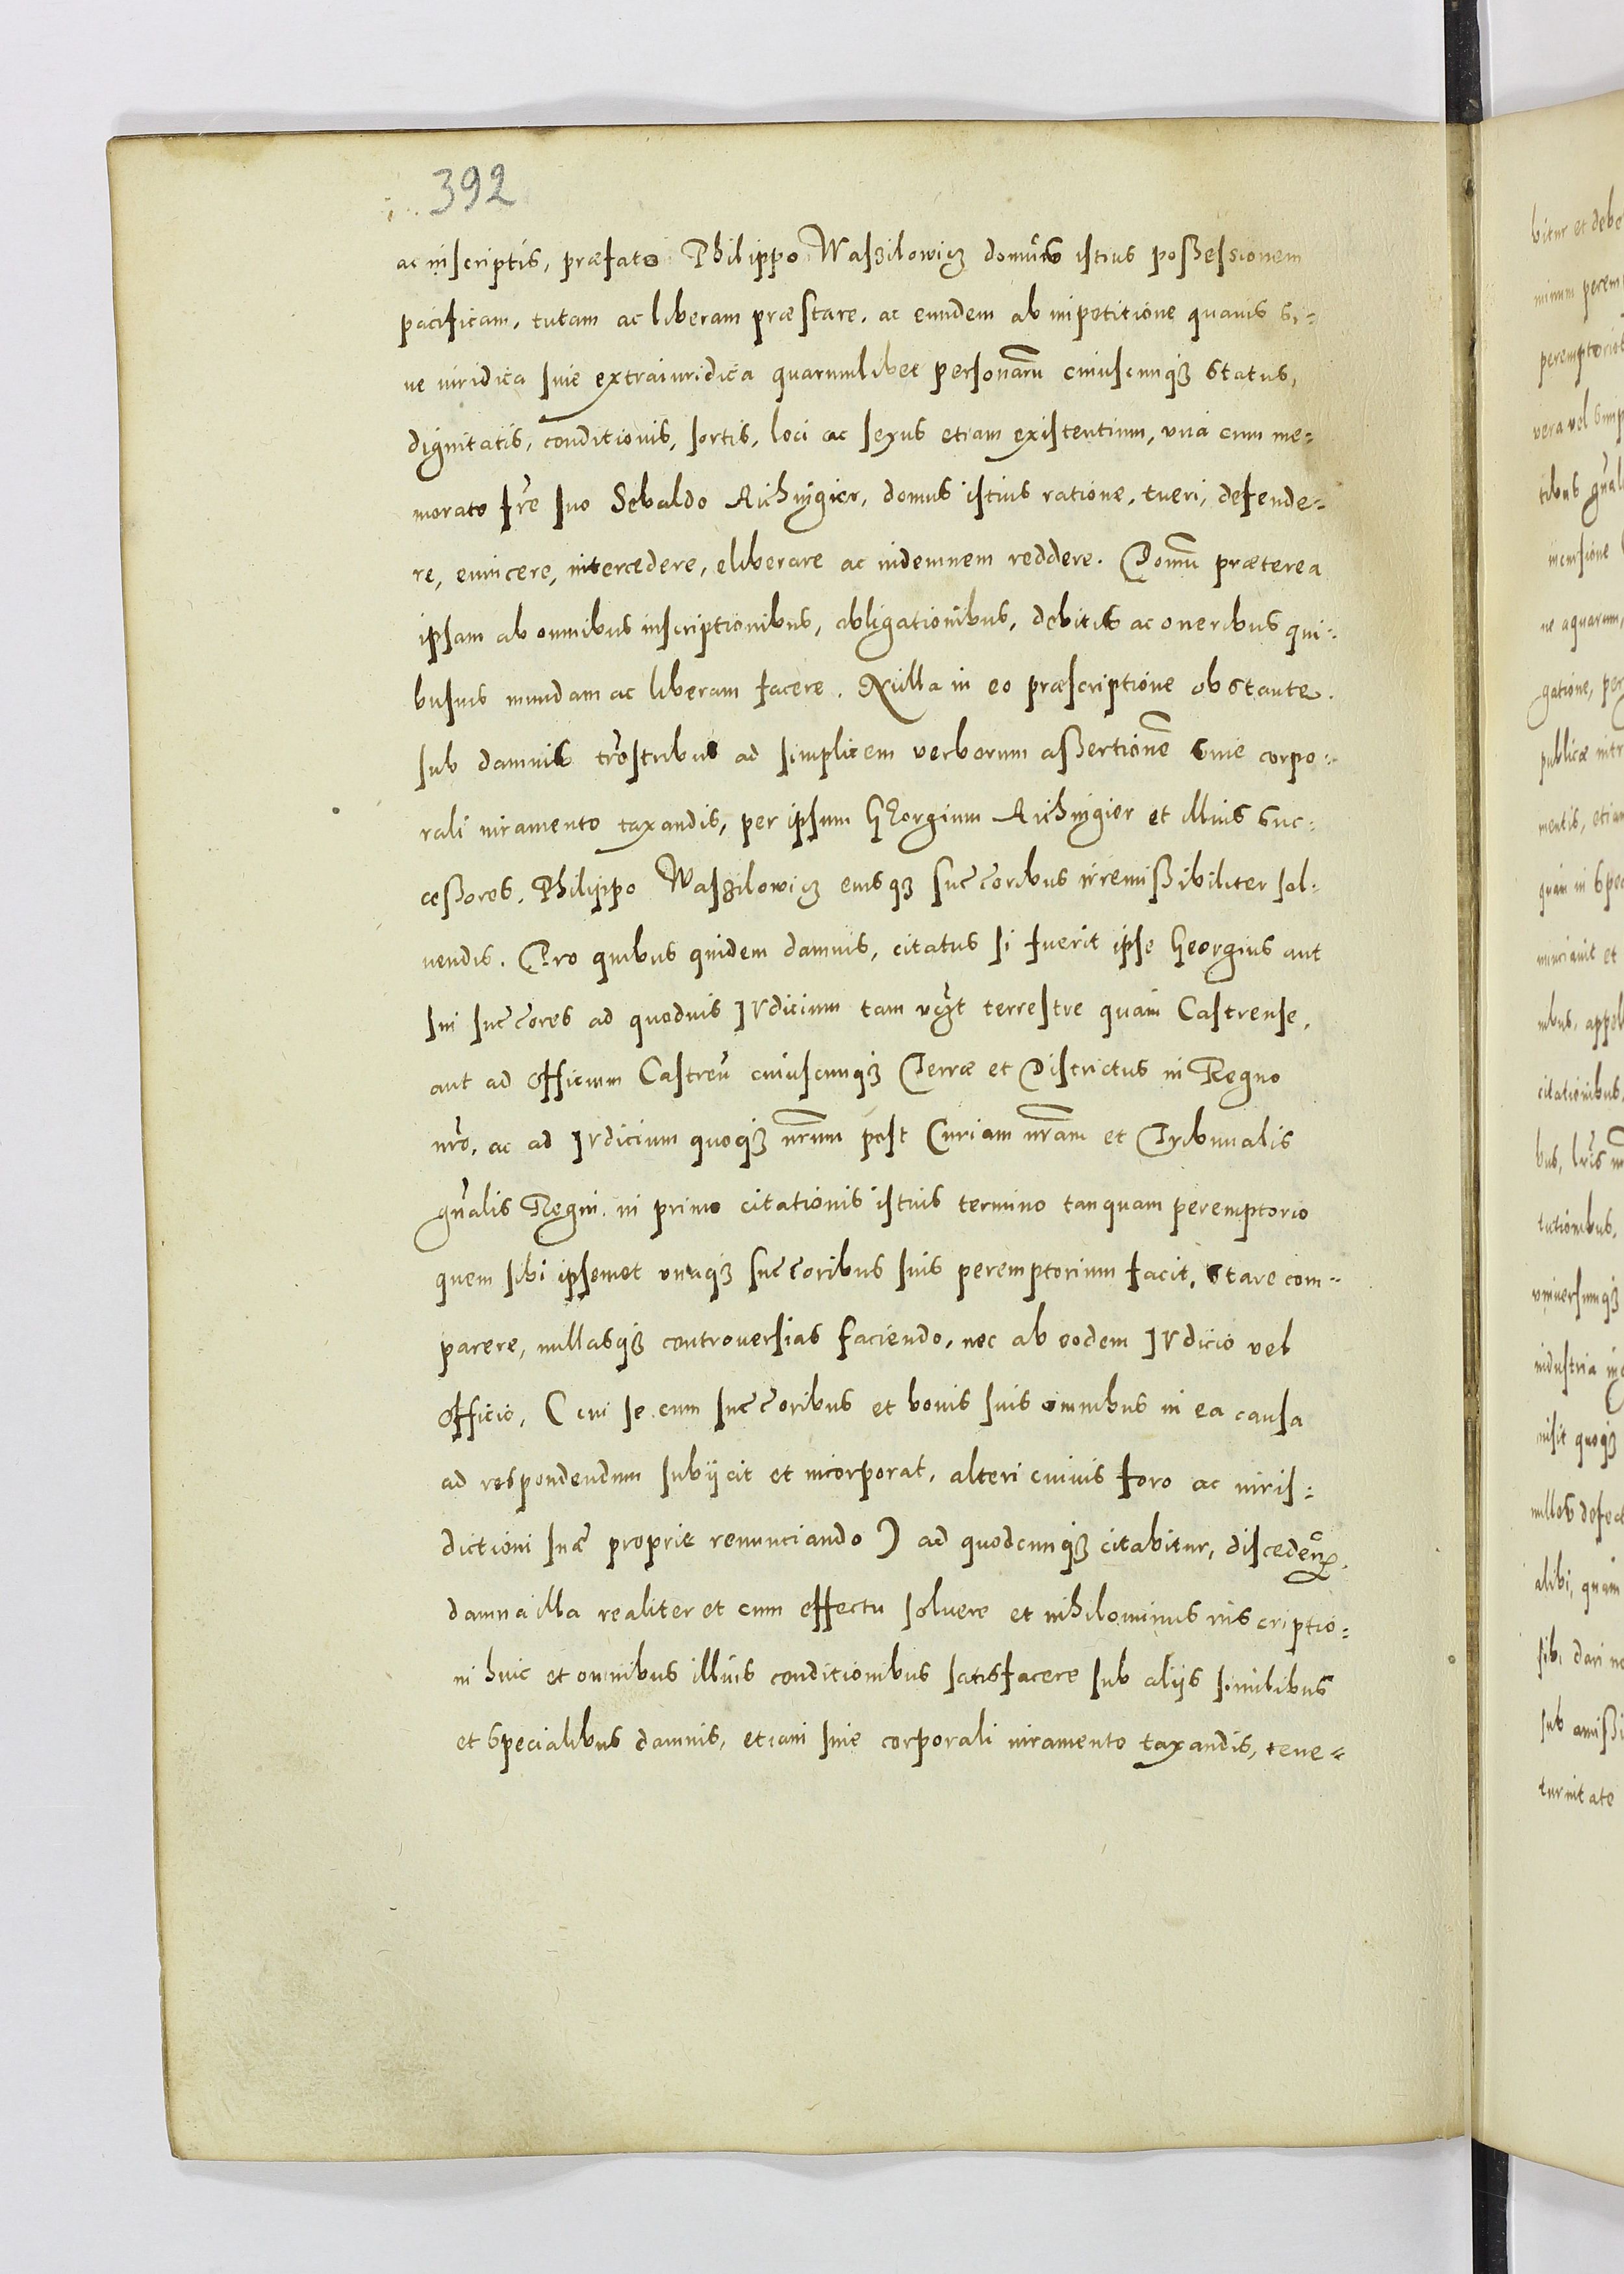 392
ac inscriptis, præfato Philippo Waszilowicz domûs istius possessionem
pacificam, tutam ac liberam præstare, ac eundem ab impetitione quauis si=
ue iuridica siue extraiuridica quarumlibet personarũ cuiuscunqȝ status,
dignitatis, conditionis, sortis, loci ac sexus etiam existentium, vnà cum me=
morato frẽ suo Sebaldo Aichingier, domus istius ratione, tueri, defende=
re, euincere, intercedere, eliberare ac indemnem reddere. Domũ præterea
ipsam ab omnibus inscriptionibus, obligationibus, debitis ac oneribus qui=
busuis mundam ac liberam facere. Nulla in eo præscriptione obstante.
sub damnis trõstribus ad simplicem verborum assertionẽ siue corpo=
rali iuramento taxandis, per ipsum GEorgium Aichingier et illius suc=
cessores, Philippo Waszilowicz eiusqȝ succ̃oribus irremissibiliter sol=
uendis. Pro quibus quidem damnis, citatus si fuerit ipse Georgius aut
sui succ̃ores ad quoduis IVdicium tam vc̃ꝫt terrestre quàm Castrense,
aut ad Officium Castreñ cuiuscunqȝ Terræ et Districtus in Regno
nr̃o, ac ad IVdicium quoqȝ nr̃um post Curiam nr̃am et Tribunalis
gñalis Regni, in primo citationis istius termino tanquam peremptorio
quem sibi ipsemet vnaqȝ succ̃oribus suis peremptorium facit, stare com=
parere, nullasqȝ controuersias faciendo, nec ab eodem IVdicio vel
Officio, (cui se cum succ̃oribus et bonis suis omnibus in ea causa
ad respondendum subijcit et incorporat, alteri cuiuis foro ac iuris=
dictioni suæ propriæ renunciando) ad quodcunqȝ citabitur, discedeñ.
damna illa realiter et cum effectu soluere et nihilominus inscriptio=
ni huic et omnibus illius conditionibus satisfacere sub alijs similibus
et specialibus damnis, etiam siue corporali iuramento taxandis, tene=
bitur et debe
minum perem
peremptoriè
vera vel simp
tibus gñal
incursione
ne aquarum,
gatione, per
publicæ intr
mentis, etiam
quàm in spec
nunciauit et
nibus, appel
citationibus,
bus, lr̃is
tutionibus,
vniuersumqȝ
industria
misit quoqȝ
nullos defect
alibi, quàm
sibi dari
sub amissi
turnitate